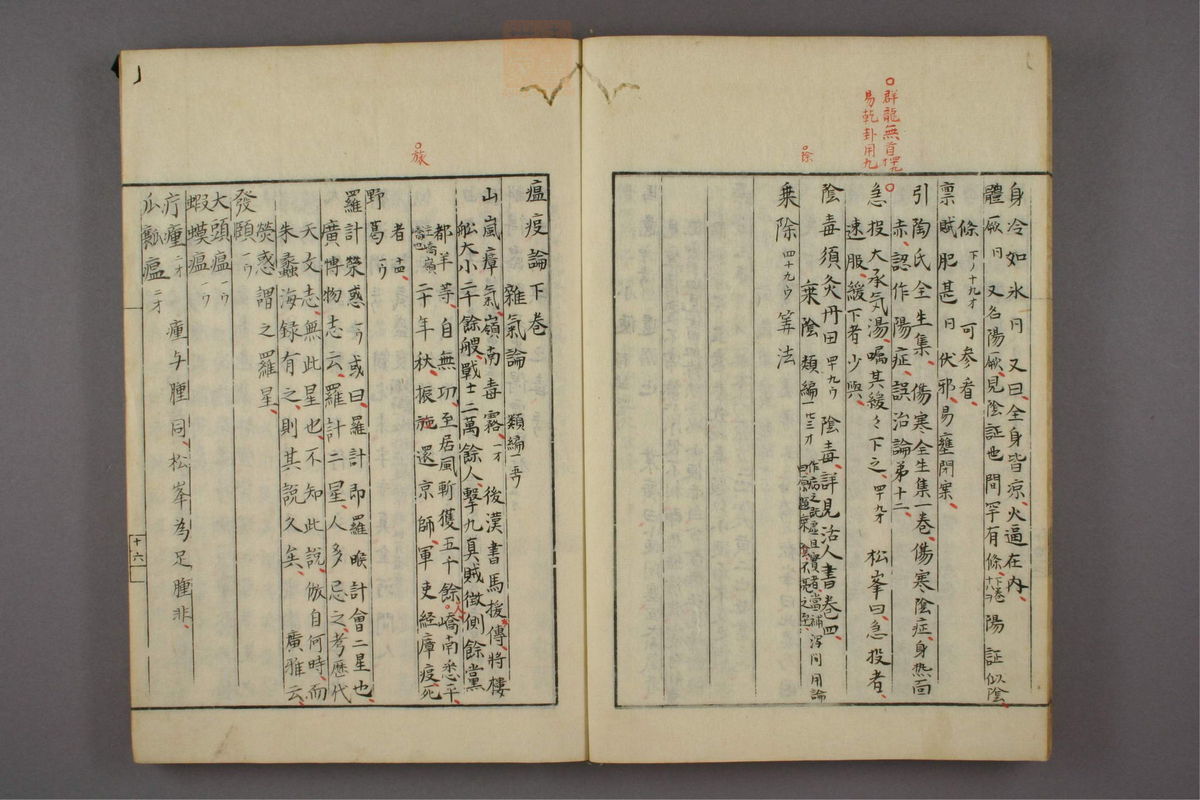 ○群龍無首四十九
易乾卦用九
身冷如氷冃又曰全身皆凉火逼在内
體厥冃又名陽厥見陰証也間罕有條下巻十八ウ陽証似陰
條下ノ十九才可参看
禀賦肥甚冃伏邪易壅閉案
引陶氏全生集傷寒全生集一巻傷寒陰症身熱面
赤認作陽症誤治論第十二
急投大承気湯嘱其緩々下之四十九才松峯曰急投者
速服緩下者少與
陰毒須灸丹田四十九ウ陰毒詳見活人書巻四
乗除
乗除四十九ウ筭法
○除
瘟疫論下巻
雜氣論類編一五ウ
山嵐瘴氣嶺南毒霧一才後漢書馬援傳将樓
舩大小二千餘艘戰士二萬餘人擊九真賊徴側餘黨
都羊等自無功至居風斬獲五千餘嶠南悉平
二十年秋振旅還京師軍吏経瘴疫死
者十四五
○旅
野葛一ウ
羅計熒惑一ウ或曰羅計即羅睺計會二星也
廣博物志云羅計二星人多忌之考歷代
天文志無此星也不知此説倣自何時而
朱蠡海録有之則其説久矣廣雅云
熒惑謂之羅星
發頤一ウ
大頭瘟一ウ
蝦蟆瘟一ウ
疔瘇二才瘇与腫同松峯為足腫非
瓜瓤瘟二才
十六